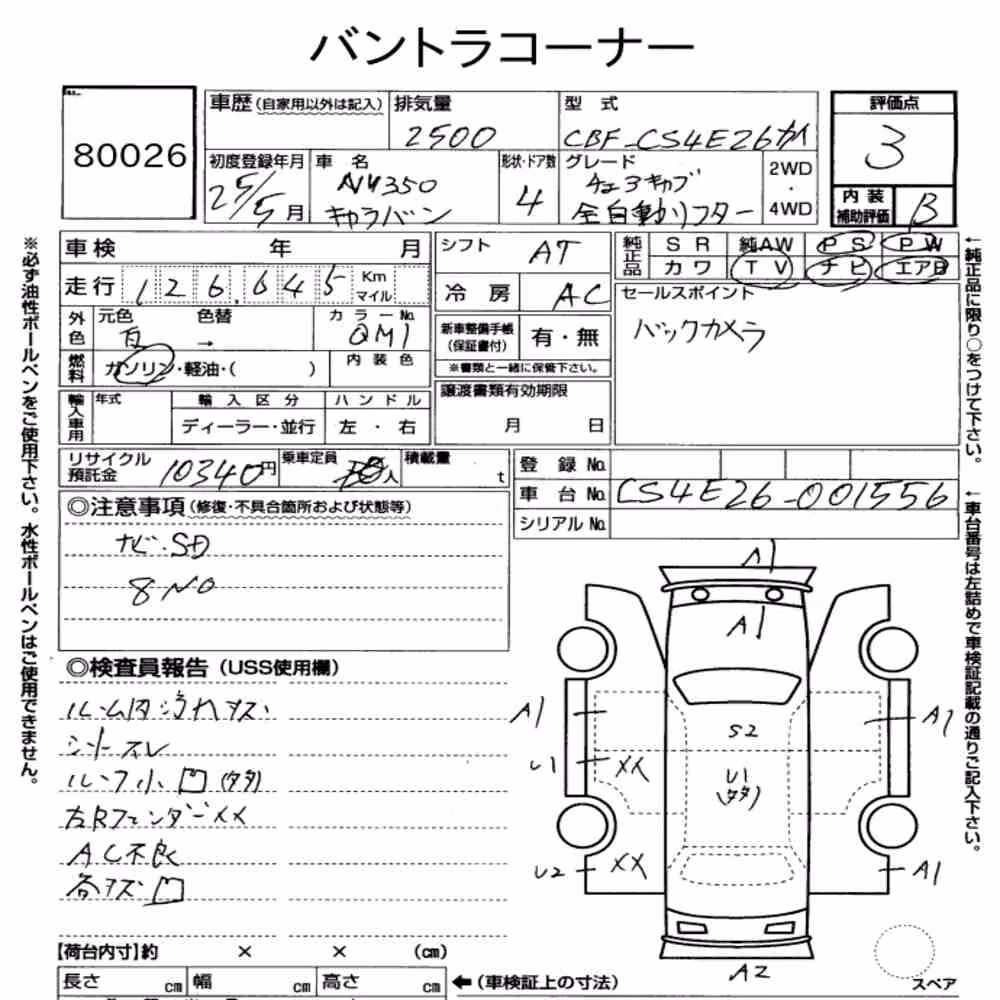 バントラコーナー
80026
車歴 (自家用以外は記入)
排気量
2500
型 式
CBF-CS4E26カイ
評価点
3
初度登録年月
25/5月
車 名
NV350
キャラバン
形状・ドア数
4
グレード
チェアキャブ
全自動リフター
2WD
・
4WD
内 装
補助評価
B
※必ず油性ボールペンをご使用下さい。水性ボールペンはご使用できません。
車検 年 月
走行 126,645 Km マイル
外色
元色 色替
白 →
カラーNo.
QM1
燃料
ガソリン・軽油・( )
内 装 色
輸入車用
年式
輸 入 区 分
ディーラー・並行
ハ ン ド ル
左 ・ 右
シフト AT
冷 房 AC
新車整備手帳
(保証書付)
有・無
※書類と一緒に保管下さい。
譲渡書類有効期限
月 日
純正品
S R 純AW P S P W
カ ワ T V ナ ビ エアB
セールスポイント
バックカメラ
←純正品に限り○をつけて下さい。
リサイクル
預託金
10340円
乗車定員
人
積載量
t
登 録 No.
車 台 No. CS4E26-001556
シリアル No.
←車台番号は左詰めで車検証記載の通りご記入下さい。
◎注意事項 (修復・不具合箇所および状態等)
ナビ・SD
8 NO
◎検査員報告 (USS使用欄)
ルーム内汚れキズ
シートスレ
ルーフ小凹(多多)
左Rフェンダー××
AC不良
各キズ凹
A1
A1
A1
A1
S2
U1
XX
U1
(多多)
U2
XX
A1
A2
スペア
【荷台内寸】約 × × (cm)
長さ cm 幅 cm 高さ cm
← (車検証上の寸法)